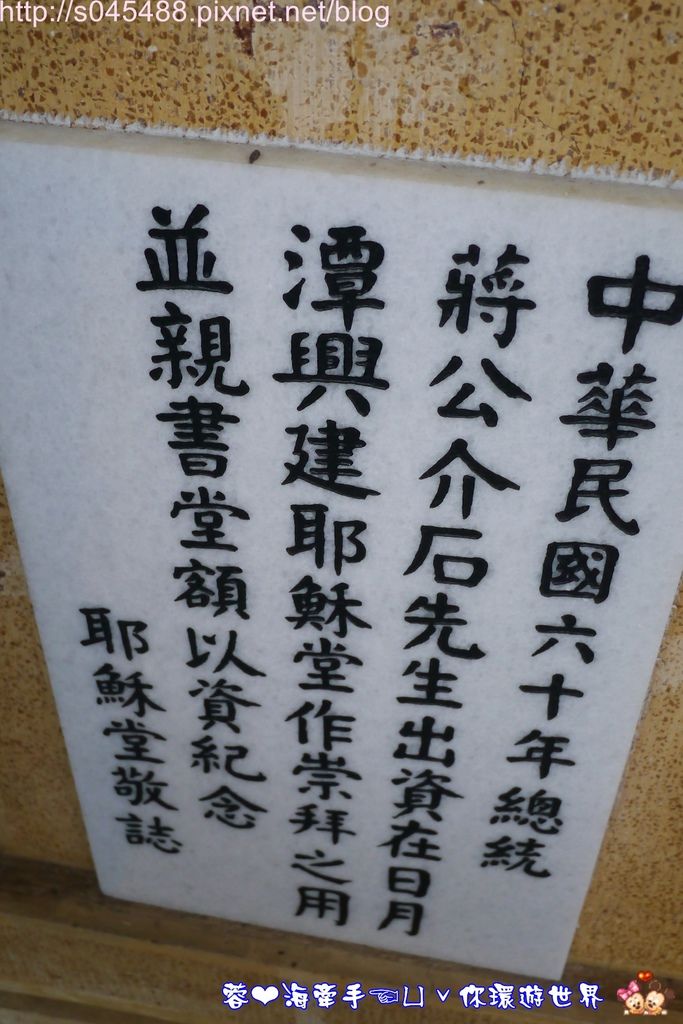 http://s045488.pixnet.net/blog
中華民國六十年總統
蔣公介石先生出資在日月
潭興建耶穌堂作崇拜之用
並親書堂額以資紀念
耶穌堂敬誌
蓉❤海牽手☜ㄩˇ你環遊世界